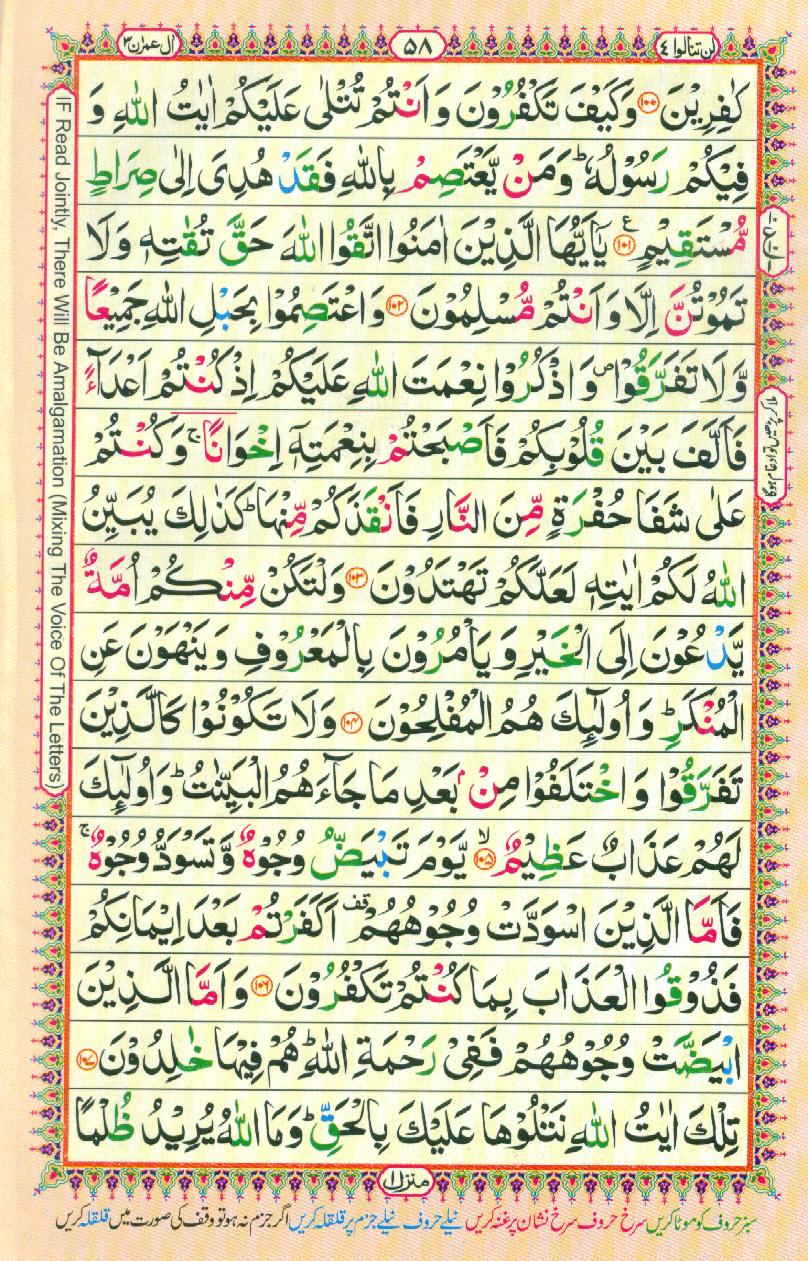 لن تنالوا ٤
٥٨
ال عمرٰن ٣
كٰفِرِيْنَ ﴿۱۰۰﴾ وَكَيْفَ تَكْفُرُوْنَ وَاَنْتُمْ تُتْلٰى عَلَيْكُمْ اٰيٰتُ اللّٰهِ وَ
فِيْكُمْ رَسُوْلُهٗ ؕ وَمَنْ يَّعْتَصِمْ بِاللّٰهِ فَقَدْ هُدِىَ اِلٰى صِرَاطٍ
مُّسْتَقِيْمٍ ﴿۱۰۱﴾ ع يٰۤاَيُّهَا الَّذِيْنَ اٰمَنُوا اتَّقُوا اللّٰهَ حَقَّ تُقٰتِهٖ وَلَا
تَمُوْتُنَّ اِلَّا وَاَنْتُمْ مُّسْلِمُوْنَ ﴿۱۰۲﴾ وَاعْتَصِمُوْا بِحَبْلِ اللّٰهِ جَمِيْعًا
وَّلَا تَفَرَّقُوْا ص وَاذْكُرُوْا نِعْمَتَ اللّٰهِ عَلَيْكُمْ اِذْ كُنْتُمْ اَعْدَآءً
فَاَلَّفَ بَيْنَ قُلُوْبِكُمْ فَاَصْبَحْتُمْ بِنِعْمَتِهٖۤ اِخْوَانًا ۚ وَكُنْتُمْ
عَلٰى شَفَا حُفْرَةٍ مِّنَ النَّارِ فَاَنْقَذَكُمْ مِّنْهَا ؕ كَذٰلِكَ يُبَيِّنُ
اللّٰهُ لَكُمْ اٰيٰتِهٖ لَعَلَّكُمْ تَهْتَدُوْنَ ﴿۱۰۳﴾ وَلْتَكُنْ مِّنْكُمْ اُمَّةٌ
يَّدْعُوْنَ اِلَى الْخَيْرِ وَيَاْمُرُوْنَ بِالْمَعْرُوْفِ وَيَنْهَوْنَ عَنِ
الْمُنْكَرِ ؕ وَاُولٰٓئِكَ هُمُ الْمُفْلِحُوْنَ ﴿۱۰۴﴾ وَلَا تَكُوْنُوْا كَالَّذِيْنَ
تَفَرَّقُوْا وَاخْتَلَفُوْا مِنْۢ بَعْدِ مَا جَآءَهُمُ الْبَيِّنٰتُ ؕ وَاُولٰٓئِكَ
لَهُمْ عَذَابٌ عَظِيْمٌ ﴿۱۰۵﴾ ۙ يَّوْمَ تَبْيَضُّ وُجُوْهٌ وَّتَسْوَدُّ وُجُوْهٌ ۚ
فَاَمَّا الَّذِيْنَ اسْوَدَّتْ وُجُوْهُهُمْ قف اَكَفَرْتُمْ بَعْدَ اِيْمَانِكُمْ
فَذُوْقُوا الْعَذَابَ بِمَا كُنْتُمْ تَكْفُرُوْنَ ﴿۱۰۶﴾ وَاَمَّا الَّذِيْنَ
ابْيَضَّتْ وُجُوْهُهُمْ فَفِىْ رَحْمَةِ اللّٰهِ ؕ هُمْ فِيْهَا خٰلِدُوْنَ ﴿۱۰۷﴾
تِلْكَ اٰيٰتُ اللّٰهِ نَتْلُوْهَا عَلَيْكَ بِالْحَقِّ ؕ وَمَا اللّٰهُ يُرِيْدُ ظُلْمًا
منزل ١
سبز حروف کو موٹا کریں سرخ حروف سرخ نشان پر غنہ کریں نیلے حروف نیلے جزم پر قلقلہ کریں اگر جزم نہ ہو تو وقف کی صورت میں قلقلہ کریں
IF Read Jointly, There Will Be Amalgamation (Mixing The Voice Of The Letters)